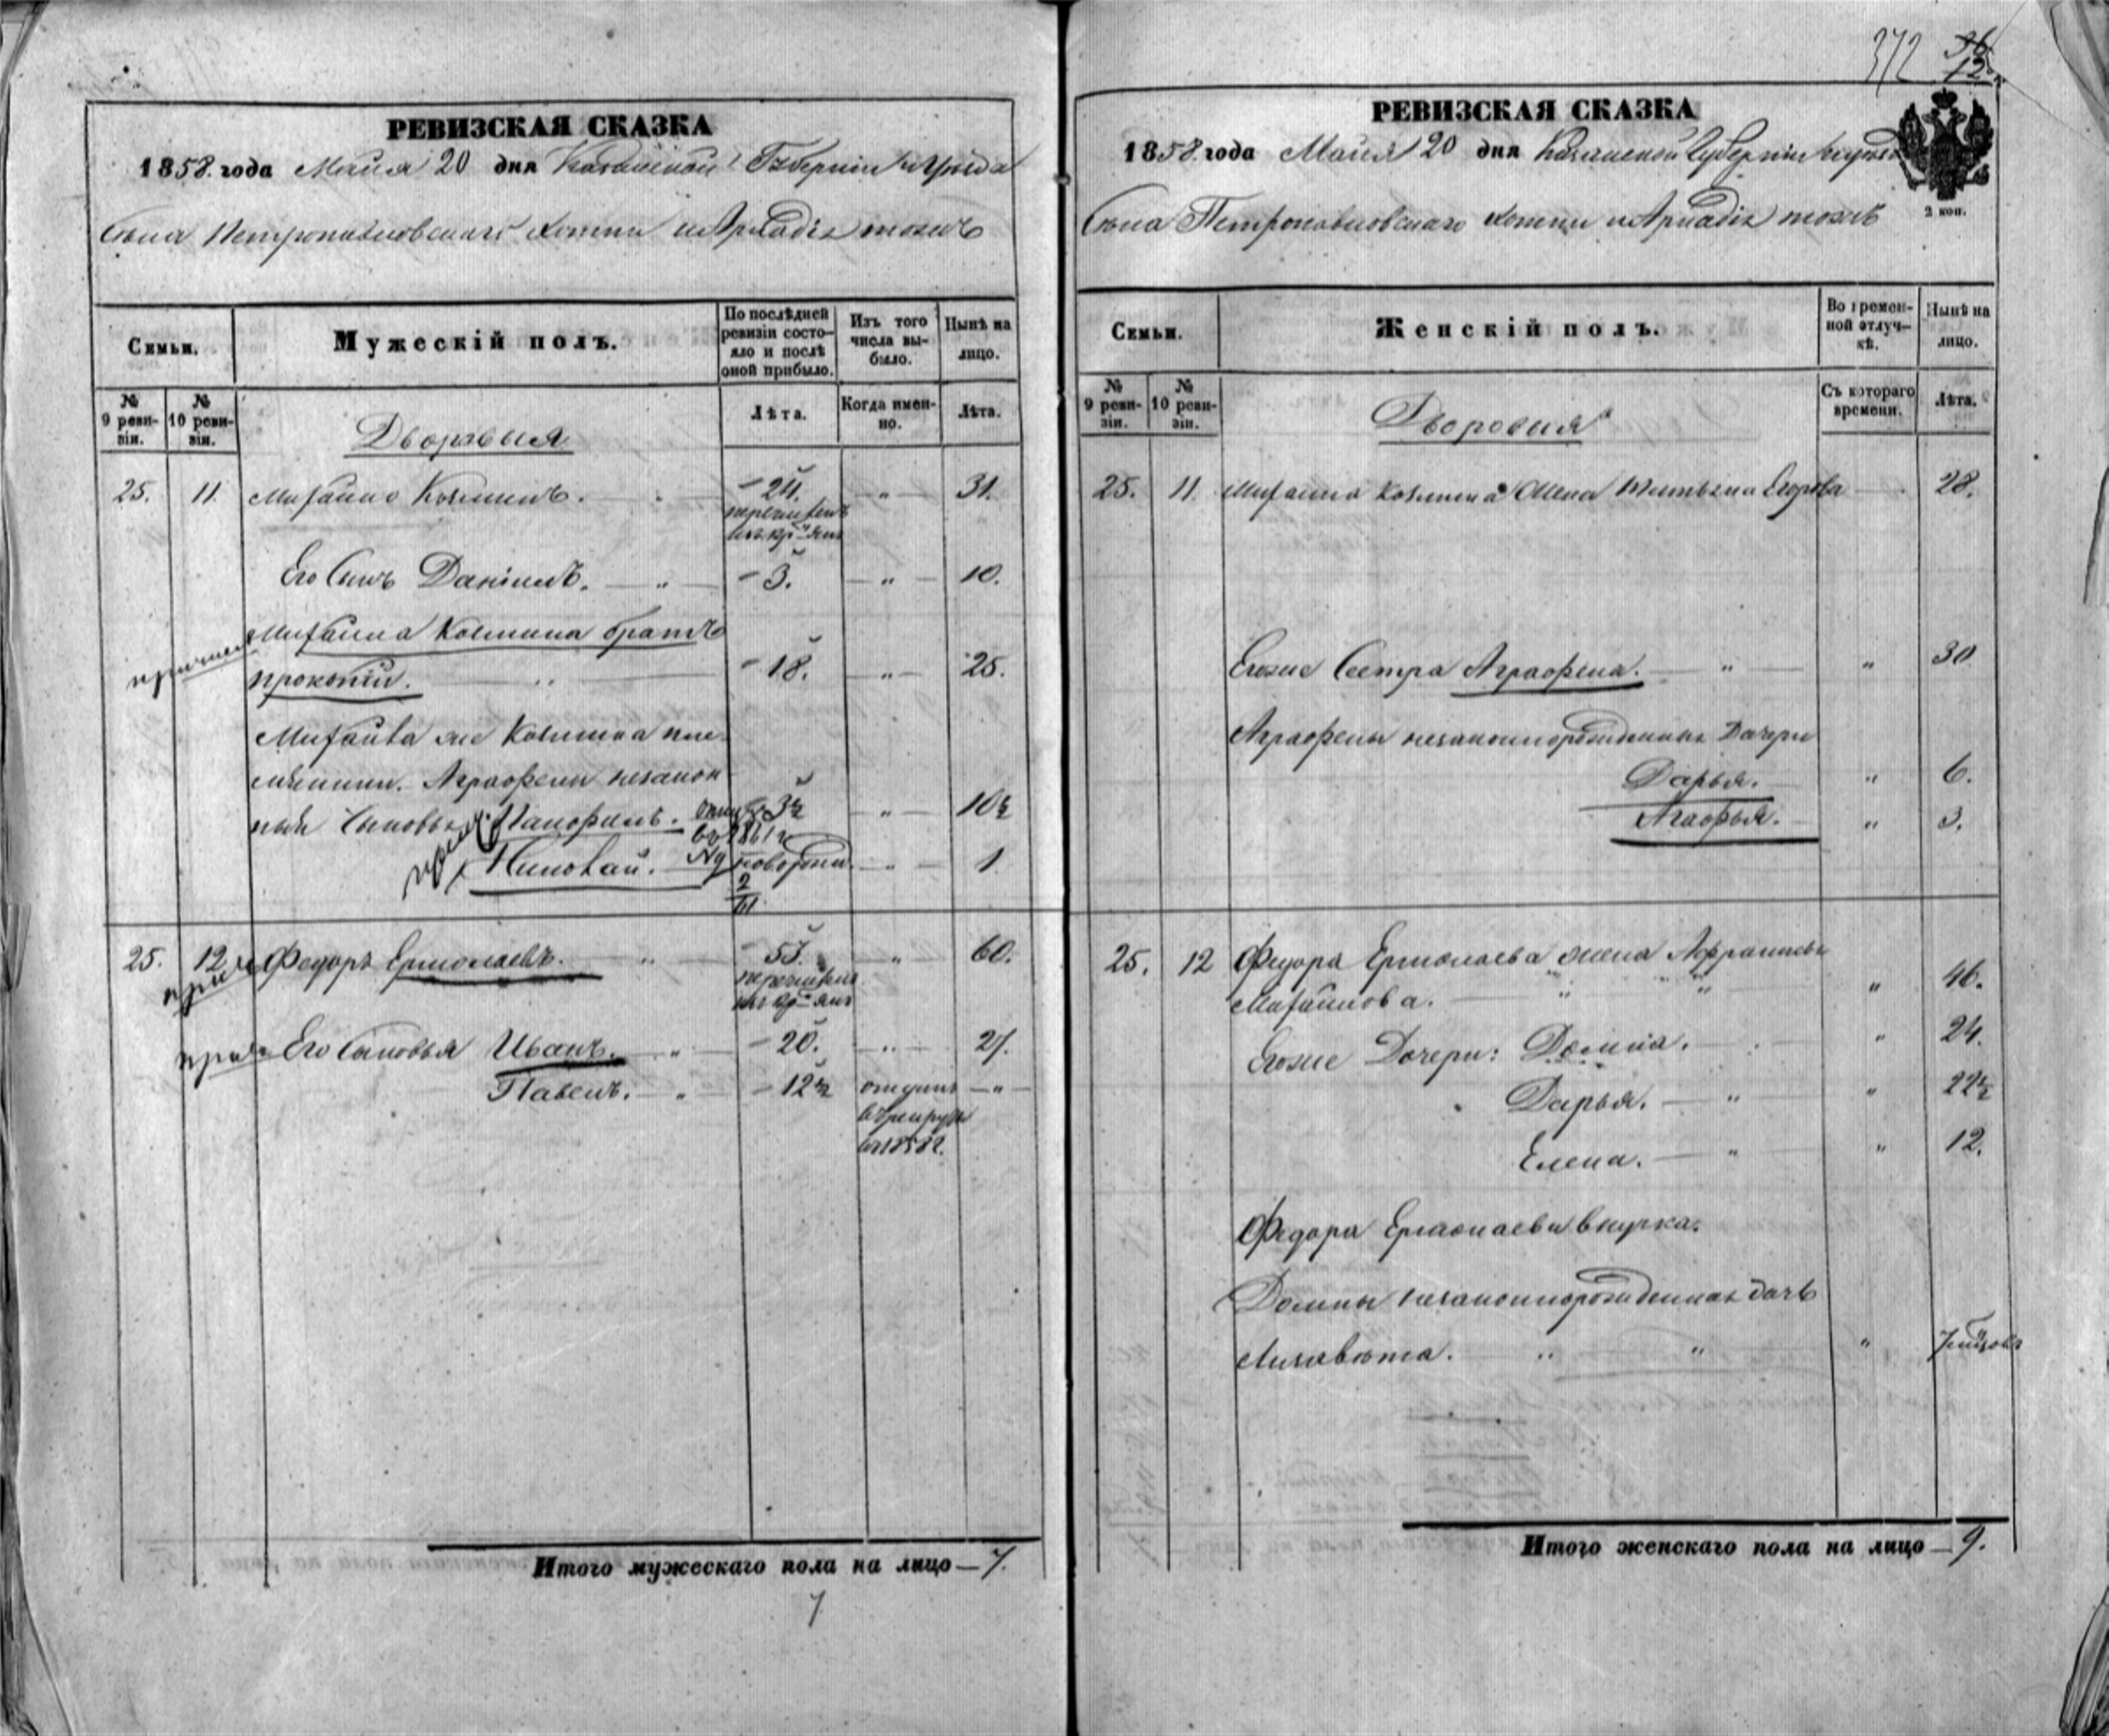 РЕВИЗСКАЯ СКАЗКА
1858. года Маия 20 дня Казанской Губернии и Уѣзда
Села Петропавловскаго Котми и Аркадія тожъ
Семьи.
Мужескій полъ.
По послѣдней ревизіи состояло и послѣ оной прибыло.
Изъ того числа выбыло.
Нынѣ на лицо.
№ 9 ревизіи.
№ 10 ревизіи.
Дворовыя
Лѣта.
Когда именно.
Лѣта.
25. 11. Михайло Козминъ. - 24. " 31.
перечислен изъ кр-янъ
Его Сынъ Даніилъ. " - 3. " 10.
Михайла Козмина братъ
прокопій. " - 18. " 25.
Михайла же Козмина пле-
мянники. Аграфены незакон-
ныи Сыновья Панфилъ. 3½ " 10½
въ 1861 г
Николай. новорожд. " 1
25. 12 Федоръ Ермолаевъ. " - 53. " 60.
перечислен изъ кр-янъ
Его Сыновья Иванъ. " - 20. " 27.
Павелъ. " - 12½ отданъ - " -
в рекруты
въ 1858 г.
Итого мужескаго пола на лицо — 7.
7
372 36
12
РЕВИЗСКАЯ СКАЗКА
1858. года Маия 20 дня Казанской Губерніи и уѣзда
Села Петропавловскаго Котми и Аркадія тожъ
2 коп.
Семьи.
Женскій полъ.
Во временной отлучкѣ.
Нынѣ на лицо.
№ 9 ревизіи.
№ 10 ревизіи.
Дворовыя
Съ котораго времени.
Лѣта.
25. 11. Михайла Козмина Жена Татьяна Егорова 28.
Егоже Сестра Аграфена. " " 30
Аграфены незаконнорожденныя Дочери
Дарья. " 6.
Агафья. " 3.
25. 12 Федора Ермолаева жена
Михайлова. " " " 46.
Егоже Дочери: Домна. " 24.
Дарья. " " 22½
Елена. " " 12.
Федора Ермолаева внучка.
Домны незаконнорожденная дочь
Лизавета. " " "
Итого женскаго пола на лицо — 9.